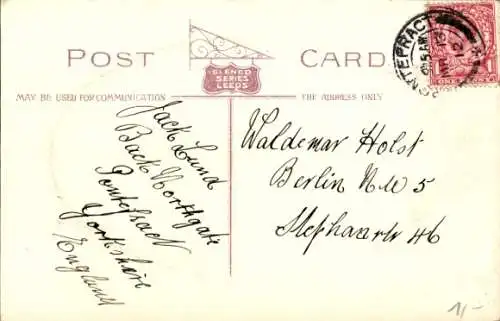 POST CARD
SLENED
SERIES
LEEDS
MAY BE USED FOR COMMUNICATION
THE ADDRESS ONLY
Jack Lund
Back Northgate
Pontefract
Yorkshire
England
PONTEFRACT
ONE PENNY
Waldemar Holst
Berlin N.W 5
Stephanstr 46
1/-